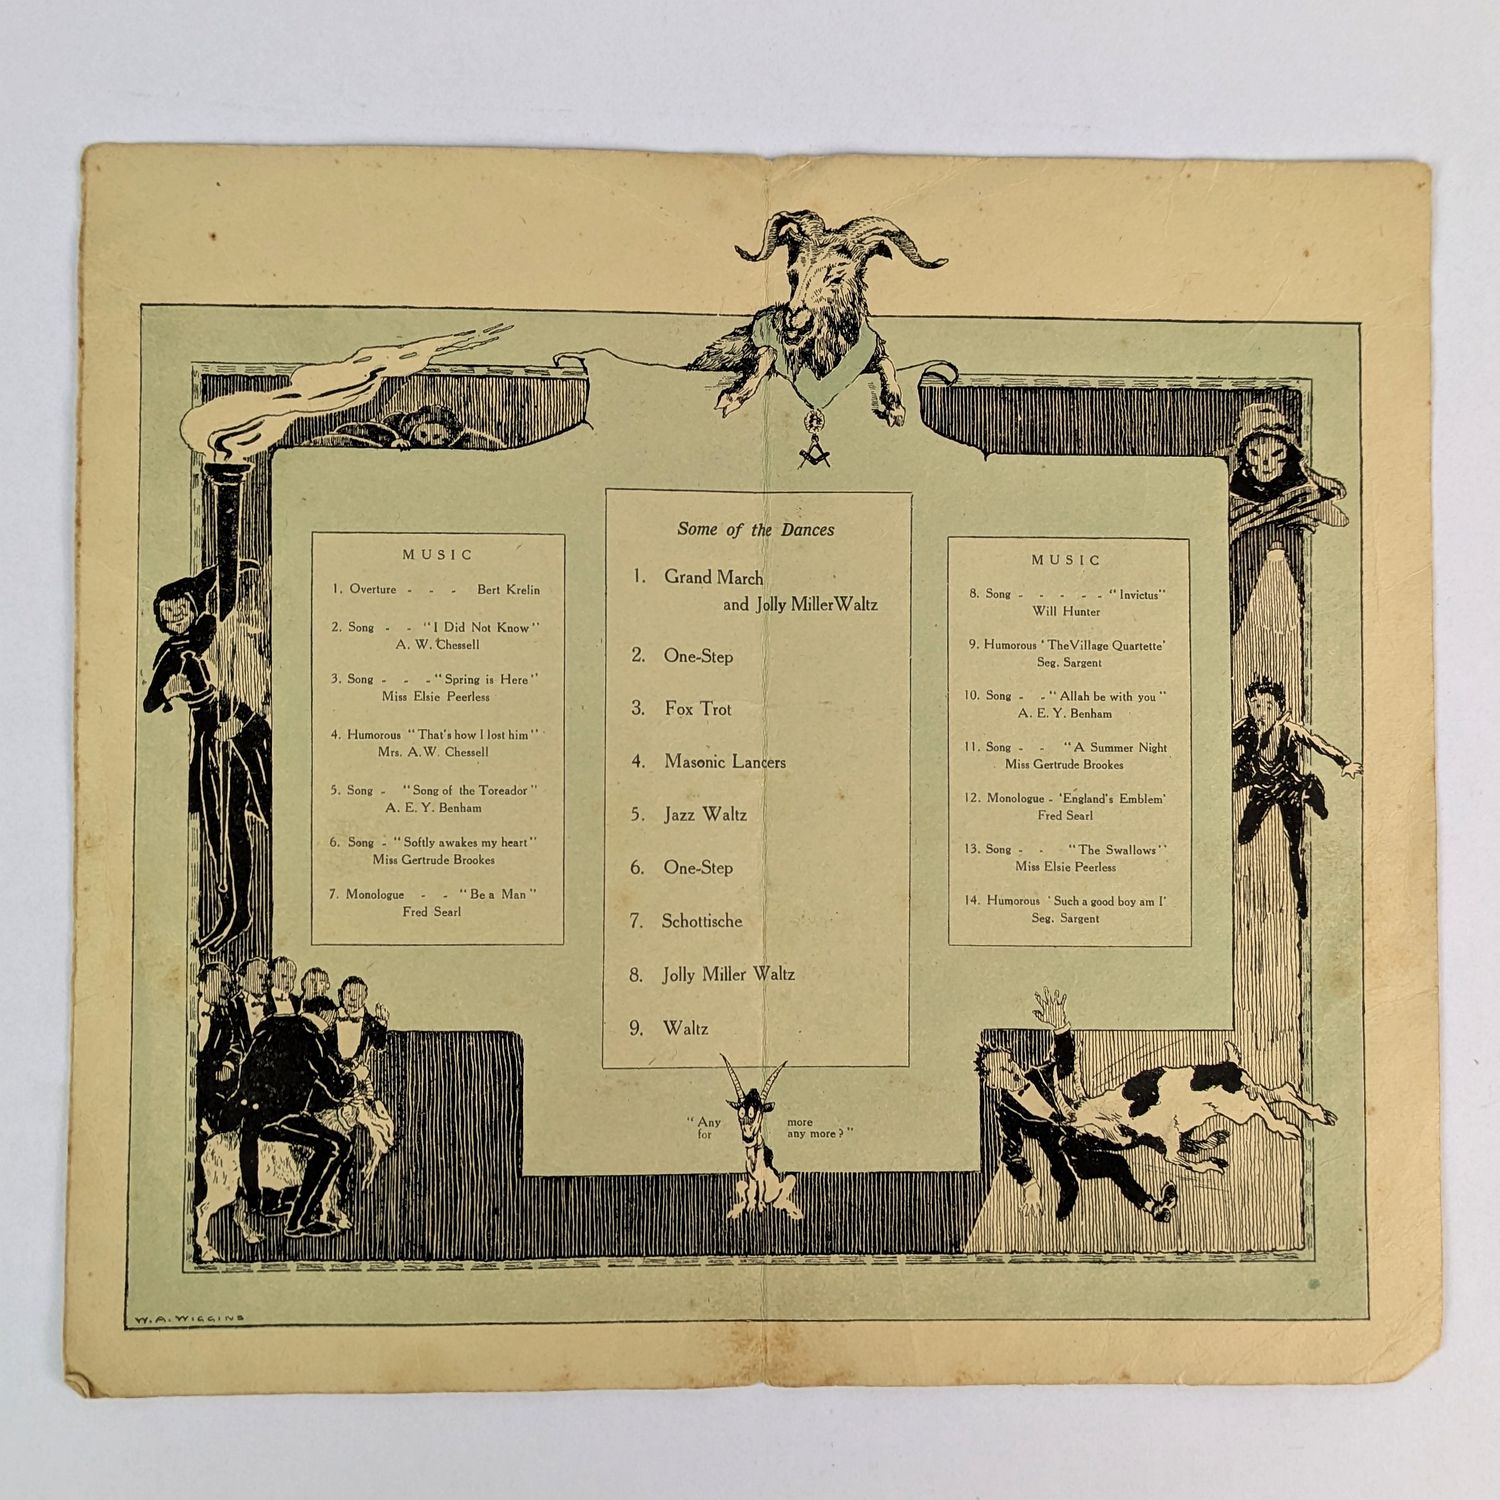 MUSIC
1. Overture - - - Bert Krelin
2. Song - - "I Did Not Know"
A. W. Chessell
3. Song - - - "Spring is Here"
Miss Elsie Peerless
4. Humorous "That's how I lost him"
Mrs. A.W. Chessell
5. Song - "Song of the Toreador"
A. E. Y. Benham
6. Song - "Softly awakes my heart"
Miss Gertrude Brookes
7. Monologue - - "Be a Man"
Fred Searl
Some of the Dances
1. Grand March
and Jolly Miller Waltz
2. One-Step
3. Fox Trot
4. Masonic Lancers
5. Jazz Waltz
6. One-Step
7. Schottische
8. Jolly Miller Waltz
9. Waltz
"Any more
for any more?"
MUSIC
8. Song - - - - - "Invictus"
Will Hunter
9. Humorous 'The Village Quartette'
Seg. Sargent
10. Song - - "Allah be with you"
A. E. Y. Benham
11. Song - - "A Summer Night
Miss Gertrude Brookes
12. Monologue - 'England's Emblem'
Fred Searl
13. Song - - "The Swallows"
Miss Elsie Peerless
14. Humorous 'Such a good boy am I'
Seg. Sargent
W. A. WIGGINS